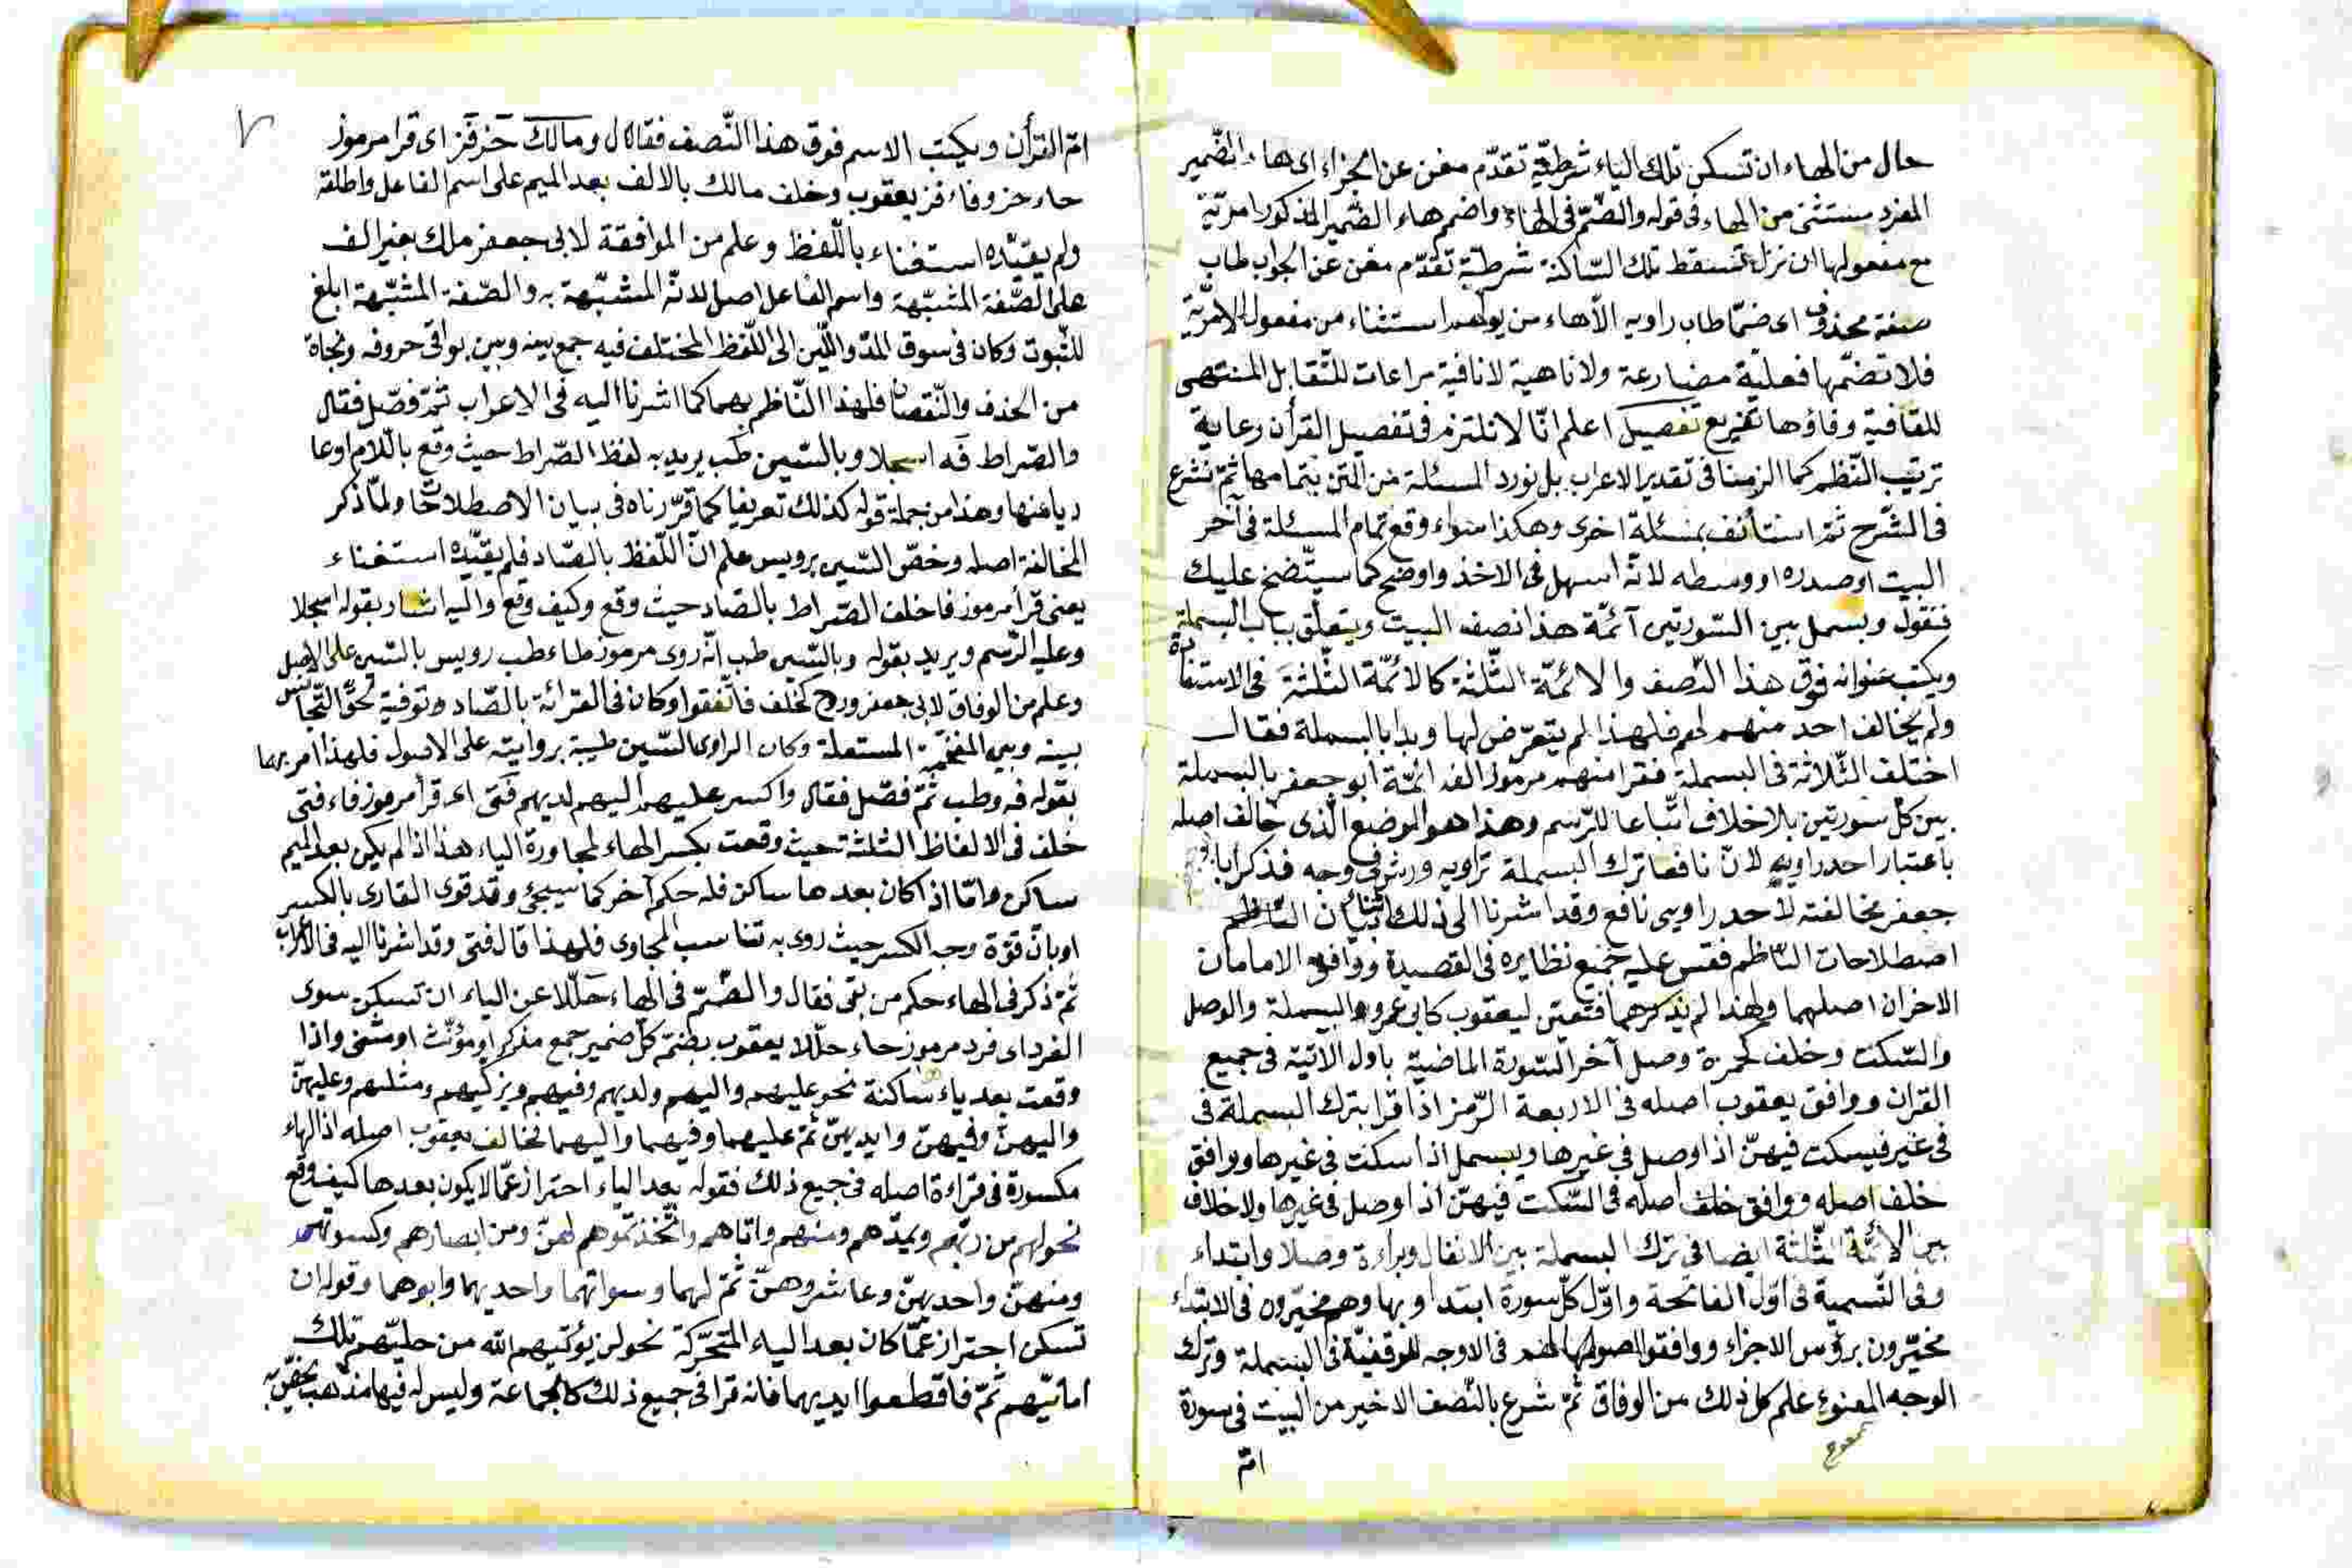 حال من الهاء ان تسكن تلك الياء شرطيّة تقدّم مغن عن الجزاء اى هاء الضّمير
المفرد مستثنى من الهاء فى قوله والضّمّ فى الهاء واضمم هاء الضّمير المذكور امريّة
مع مفعولها ان تزل تسقط تلك السّاكنة شرطيّة تقدّم مغن عن الجواب طاب
صفة محذوف اى ضمّا طاب راويه الّا هاء من يولهم استثناء من مفعول الامريّة
فلا تضمّها فعليّة مضارعة ولا ناهية لا نافية مراعات للتّقابل المنتهى
للقافية وفاؤها تفريع تفصيل اعلم انّا لا نلتزم فى تفصيل القرأن رعاية
ترتيب النّظم كما الزمنا فى تقدير الاعراب بل نورد المسئلة من المتن بتمامها ثمّ نشرع
فى الشّرح ثمّ استأنف بمسئلة اخرى وهكذا سواء وقع تمام المسئلة فى آخر
البيت او صدره او وسطه لانّه اسهل فى الاخذ واوضح كما سيتّضح عليك
فنقول وبسمل بين السّورتين آئمّة هذا نصف البيت ويتعلّق بباب البسملة
ويكتب عنوانه فوق هذا النّصف والائمّة الثّلثة كالائمّة الثّلثة فى الاستعاذة
ولم يخالف احد منهم لهم فلهذا لم يتعرّض لها وبدا بالبسملة فقال
اختلف الثّلاثة فى البسملة فقرا منهم مرموز الف ائمّة ابو جعفر بالبسملة
بين كلّ سورتين بلا خلاف اتّباعا للرّسم وهذا هو الموضع الّذى خالف اصله
باعتبار احد راويه لانّ نافعا ترك البسملة براويه ورش فى وجه فذكر ابا
جعفر مخالفته لاحد راويى نافع وقد اشرنا الى ذلك اثناء بيان
اصطلاحات النّاظم فقس عليه جميع نظايره فى القصيدة ووافق الامامان
الاخران اصلهما ولهذا لم يذكرهما فتعيّن ليعقوب كابى عمرو البسملة والوصل
والسّكت وخلف كحمزة وصل آخر السّورة الماضية باول الآتية فى جميع
القران ووافق يعقوب اصله فى الاربعة الزّهر اذا قرا بترك البسملة فى
فى غير فيسكت فيهنّ اذا وصل فى غيرها ويبسمل اذا سكت فى غيرها ووافق
خلف اصله ووافق خلف اصله فى السّكت فيهنّ اذا وصل فى غيرها ولا خلاف
بين الائمّة الثّلثة ايضا فى ترك البسملة بين الانفال وبراءة وصلا وابتداء
وفى التّسمية فى اوّل الفاتحة واوّل كلّ سورة ابتداو بها وهم مخيّرون فى الابتداء
مخيّرون برؤس الاجزاء ووافقوا اصولهم فى الاوجه الوقفيّة فى البسملة وترك
الوجه الممنوع علم كل ذلك من الوفاق ثمّ شرع بالنّصف الاخير من البيت فى سورة
امّ
امّ القرأن ويكتب الاسم فوق هذا النّصف فقال ومالك حز فز اى قرا مرموز
حاء حز وفاء فز يعقوب وخلف مالك بالالف بعد الميم على اسم الفاعل واطلقه
ولم يقيّده استغناء باللّفظ وعلم من الموافقة لابى جعفر ملك بغير الف
على الصّفة المشبّهة واسم الفاعل اصل لانّه المشبّهة به والصّفة المشبّهة ابلغ
للثّبوت وكان فى سوق المدّ واللّين الى اللّفظ المختلف فيه جمع بينه وبين بواقى حروفه ونجاة
من الحذف والنّقصان فلهذا النّاظم بهما كما اشرنا اليه فى الاعراب ثمّ فصّل فقال
والصّراط فه اسجلا وبالسّين طب يريد به لفظ الصّراط حيث وقع باللّام او عا
ريا منها وهذا من جملة قوله كذلك تعريفا كما قرّرناه فى بيان الاصطلاحات ولمّا ذكر
المخالفة اصله وخصّ السّين برويس علم انّ اللّفظ بالصّاد فلم يقيّده استغناء
يعنى قرأ مرموز فا خلف الصّراط بالصّاد حيث وقع وكيف وقع واليه اشار بقوله اسجلا
وعليه الرّسم ويريد بقوله وبالسّين طب انّه روى مرموز طاء طب رويس بالسّين على الاصل
وعلم من الوفاق لابى جعفر وروح كخلف فاتّفقوا وكان فى القرائة بالصّاد توفية لحقّ التّجانس
بينه وبين المفخّمة المستعلة وكان الراوى السّين طيبة بروايته على الاصول فلهذا امر بهما
بقوله فه وطب ثمّ فصّل فقال واكسر عليهم اليهم لديهم فتى اى قرأ مرموز فاء فتى
خلف فى الالفاظ الثلثة حيث وقعت بكسر الهاء لمجاورة الياء هذا اذا لم يكن بعد الميم
ساكن وامّا اذا كان بعدها ساكن فله حكم آخر كما سيجئ وقد قوى القارى بالكسر
اوبان قوّة وجه الكسر حيث روى به تناسب المجاوى فلهذا قال فتى وقد اشرنا اليه فى الاعراب
ثمّ ذكر فى الهاء حكم من بقى فقال والضّمّ فى الهاء حلّلا عن الياء ان تسكن سوى
الفرد اى فرد مرموز حاء حلّلا يعقوب بضمّ كلّ ضمير جمع مذكر او مؤنّث او مثنى واذا
وقعت بعد ياء ساكنة نحو عليهم واليهم ولديهم وفيهم ويزكيهم ومثلهم وعليهنّ
واليهنّ وفيهنّ وايديهنّ ثمّ عليهما وفيهما واليهما فخالف يعقوب اصله اذ الهاء
مكسورة فى قراءة اصله فى جميع ذلك فقوله بعد الياء احتراز عمّا لا يكون بعدها كيف وقع
نحو لهم من ربّهم ويمدّهم ومنهم واتاهم واتّخذتموهم لهنّ ومن ابصارهم وكسوتهم
ومنهنّ واحديهنّ وعاشروهنّ ثمّ لهما وسواتهما واحديهما وابوهما وقوله ان
تسكن احتراز عمّا كان بعد الياء المتحرّكة نحو لن يؤتيهم الله من حليّهم تلك
امانيّهم ثمّ فاقطعوا ايديهما فانه قرا فى جميع ذلك كالجماعة وليس له فيها مذهب يخصّ به